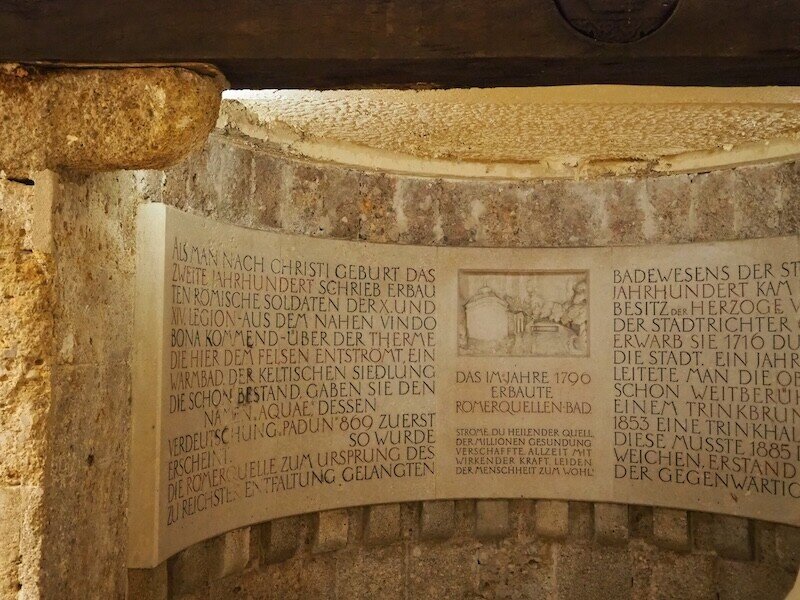 ALS MAN NACH CHRISTI GEBURT DAS
ZWEITE JAHRHUNDERT SCHRIEB ERBAU
TEN RÖMISCHE SOLDATEN DER X. UND
XIV. LEGION - AUS DEM NAHEN VINDO
BONA KOMMEND - ÜBER DER THERME
DIE HIER DEM FELSEN ENTSTRÖMT, EIN
WARMBAD. DER KELTISCHEN SIEDLUNG
DIE SCHON BESTAND, GABEN SIE DEN
NAMEN „AQUAE" DESSEN
VERDEUTSCHUNG „PADUN" 869 ZUERST
ERSCHEINT SO WURDE
DIE RÖMERQUELLE ZUM URSPRUNG DES
ZU REICHSTER ENTFALTUNG GELANGTEN
DAS IM JAHRE 1796
ERBAUTE
RÖMERQUELLEN-BAD
STRÖME, DU HEILENDER QUELL,
DER MILLIONEN GESUNDUNG
VERSCHAFFTE, ALLZEIT MIT
WIRKENDER KRAFT, LEIDEN
DER MENSCHHEIT ZUM WOHL!
BADEWESENS DER ST
JAHRHUNDERT KAM
BESITZ DER HERZOGE V
DER STADTRICHTER
ERWARB SIE 1716 DU
DIE STADT. EIN JAHR
LEITETE MAN DIE OB
SCHON WEITBERÜH
EINEM TRINKBRUN
1853 EINE TRINKHAL
DIESE MUSSTE 1885
WEICHEN. ERSTAND
DER GEGENWÄRTIG